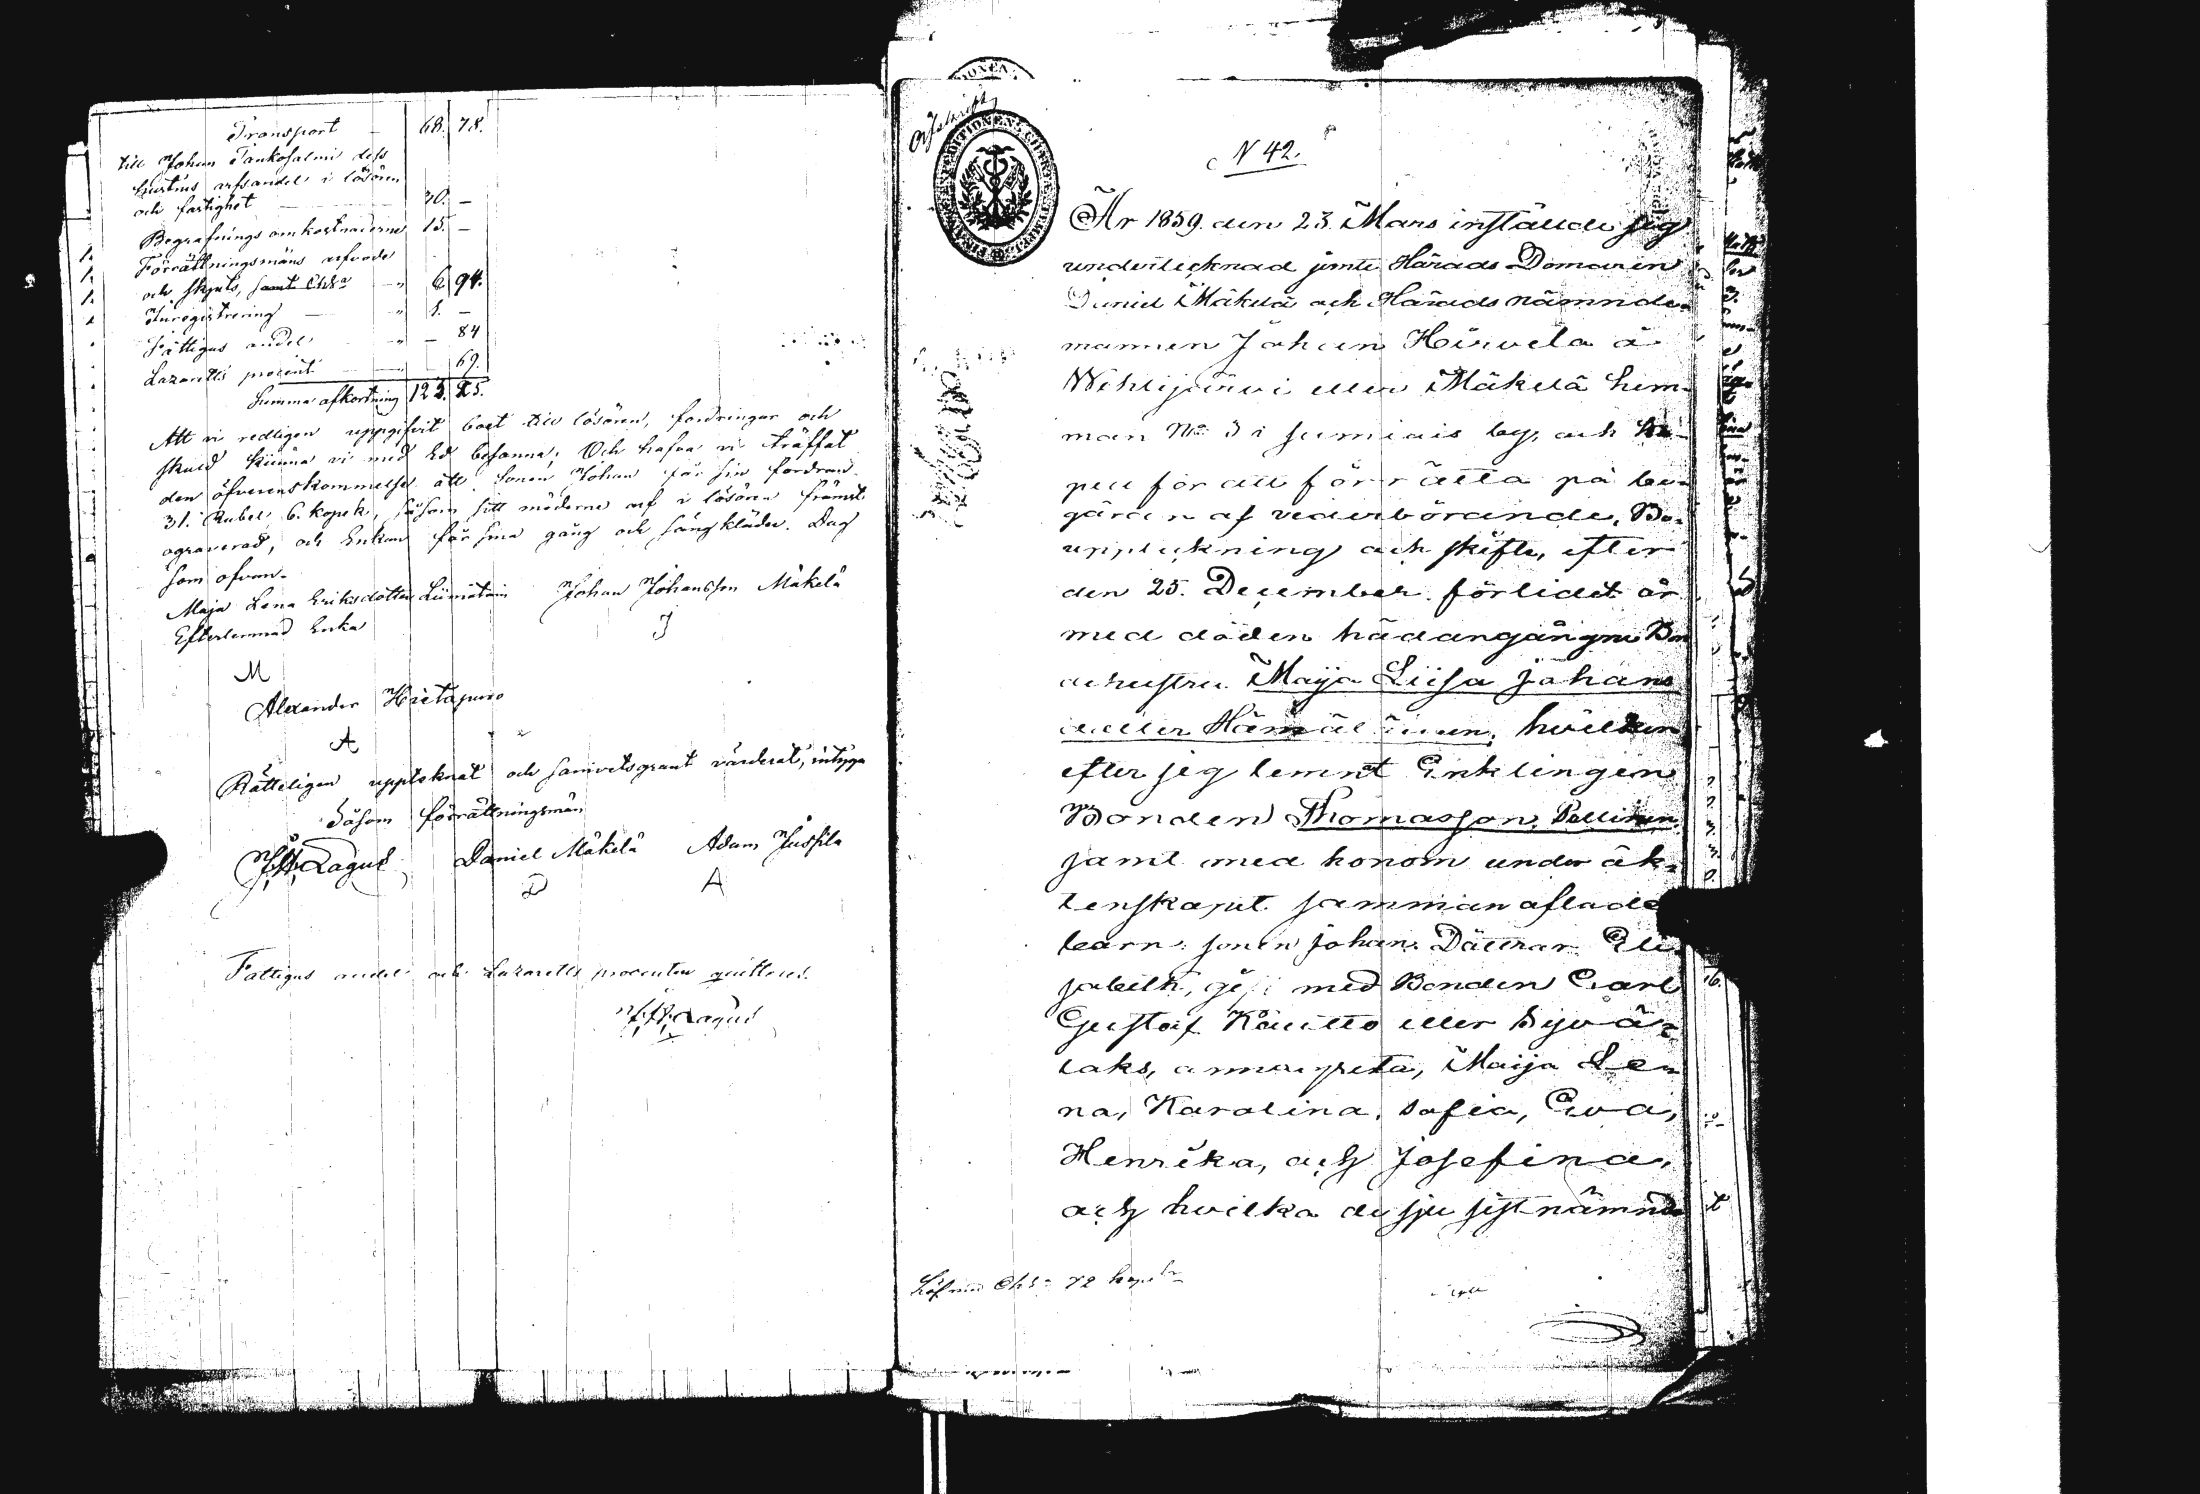 Transport 68. 78.
till Johan Tankosalmi dess
hustrus arfsandel i lösören
och fastighet 30. —
Begrafnings omkostnaderne 15. —
Förrättningsmäns arfvode
och skjuts, samt Chta " 6. 94.
Inregistrering " 1. —
Fattigas andel " — 84
Lazaretts procent — 69.
Summa afkortning 123. 25.
Att vi redligen uppgifvit boet till lösören, fordringar och
skuld kunna vi med Ed besanna; Och hafva vi träffat
den öfverenskommelse att Sonen Johan får sin fordran
31. Rubel 6. kopek, såsom sitt möderne arf i lösören främst
ograverad, och Enkan får sina gång och sängkläder. Dag
som ofvan.
Maja Lena Eriksdotter Liimatain Johan Johansson Mäkelä
Efterlemnad Enka J
M
Alexander Hietapuro
A
Rätteligen upptecknat och samvetsgrant värderat, intyga
Såsom förrättningsmän
Lagus Daniel Mäkelä Adam Jussila
D A
Fattigas andel och Lazaretts procenten quitteras.
Lagus
Afskrift
N 42.
År 1859. den 23. Mars inställde sig
undertecknad jemte Härads Domaren
Daniel Mäkelä och Härads nämnde-
mannen Johan Hirvelä å
Wehkijärvi eller Mäkelä hem-
man No 3 i Sumiais by, och
för att förrätta på be-
gäran af vederbörande, Bo-
uppteckning och skifte, efter
den 25. December förlidet år
med döden hädangångne Bon
dehustru Maija Liisa Johans
dotter Hämäläinen, hvilken
efter sig lemnat Enklingen
Bonden Thomasson Pellinen,
samt med honom under äk-
tenskapet samman aflade
barn: sonen Johan. Döttrar Eli-
sabeth, gift med Bonden Carl
Gustaf Kautto eller Syvä-
laks, Annagreta, Maija Le-
na, Karolina, Sofia, Eva,
Henrika, och Josefina,
och hvilka de sju sist nämnde
Lösen Chta 72 kopek